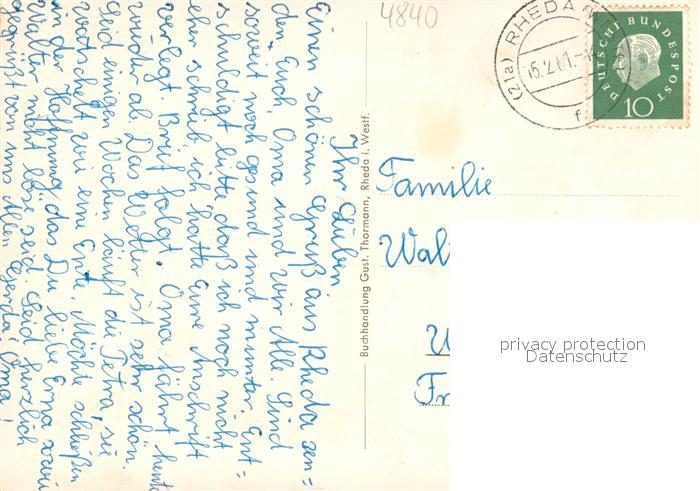 4840
(21a) RHEDA
DEUTSCHE BUNDESPOST
10
Ihr Lieben
Einen schönen Gruß aus Rheda sen=
den Euch, Oma und wir Alle. Sind
soweit noch gesund und munter. Ent=
schuldigt bitte, daß ich noch nicht
eher schrieb, ich hatte Eure Anschrift
verlegt. Brief folgt. Oma fährt heute
wieder ab. Das Wetter ist sehr schön.
Seid einigen Wochen läuft die Petra, sie
watschelt wie eine Ente. Möchte schließen
in der Hoffnung, das Du liebe Erna sowie
Walter nicht böse seid. Seid herzlich
gegrüßt von uns Allen. Gerda, Oma!
Buchhandlung Gust. Thormann, Rheda i. Westf.
Familie
Wal
privacy protection
Datenschutz
Fr